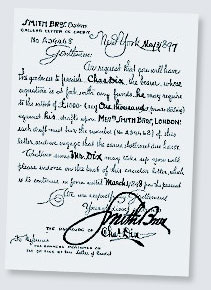 SMITH BROS. Bankers
CIRCULAR LETTER OF CREDIT
No A5946B New York May 1 1897
Gentlemen:
We request that you will have
the goodness to furnish Chas Dix, the bearer, whose
signature is at foot, with any funds he may require
to the extent of £1000 (say One thousand pounds sterling)
against his drafts upon Messrs SMITH BROS, LONDON:
each draft must bear the number (No A5946B) of this
letter, and we engage that the same shall meet due honor
Whatever sums Mr Dix may take up you will
please endorse on the back of this circular letter, which
is to continue in force until March 1, 1898 from the present
We are respectfully
Yours
Smith Bros
THE SIGNATURE OF Chas Dix
To Messieurs
THE BANKERS MENTIONED ON
the Letter of Credit